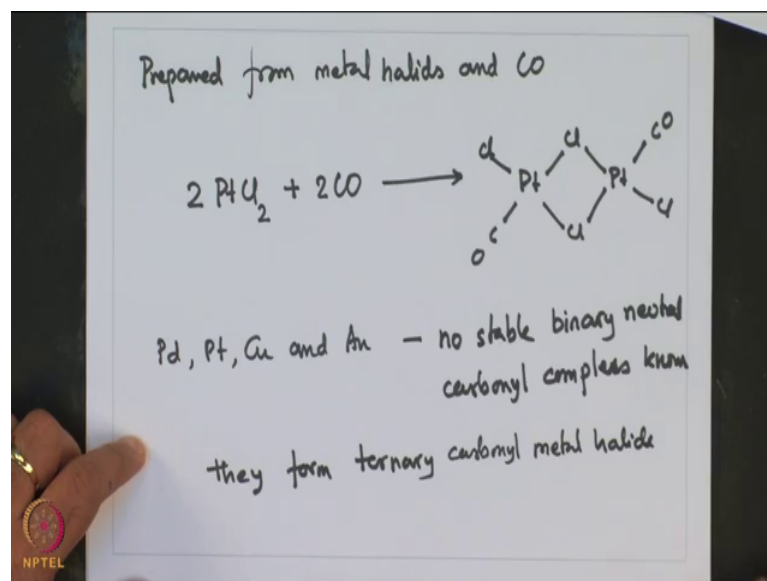 Prepared from metal halids and CO
2 PtCl2 + 2CO
Cl Cl CO
Pt Pt
C Cl Cl
O
Pd, Pt, Cu and Au – no stable binary neutral
carbonyl complexs known
they form ternary carbonyl metal halide
NPTEL